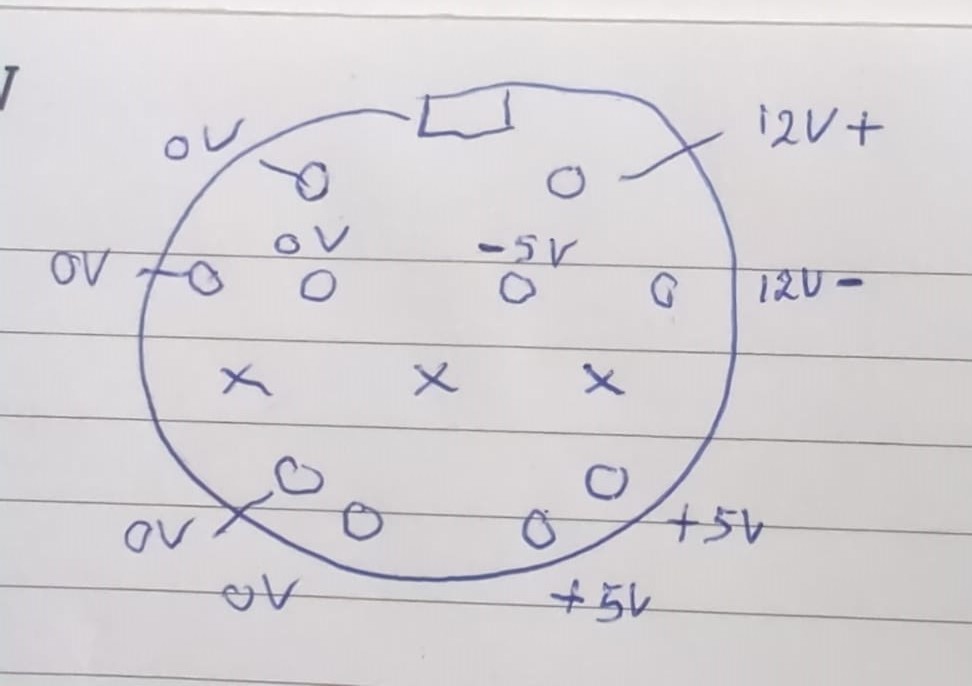 0V 12V+
0V -5V
0V 12V-
x x x
0V +5V
0V +5V